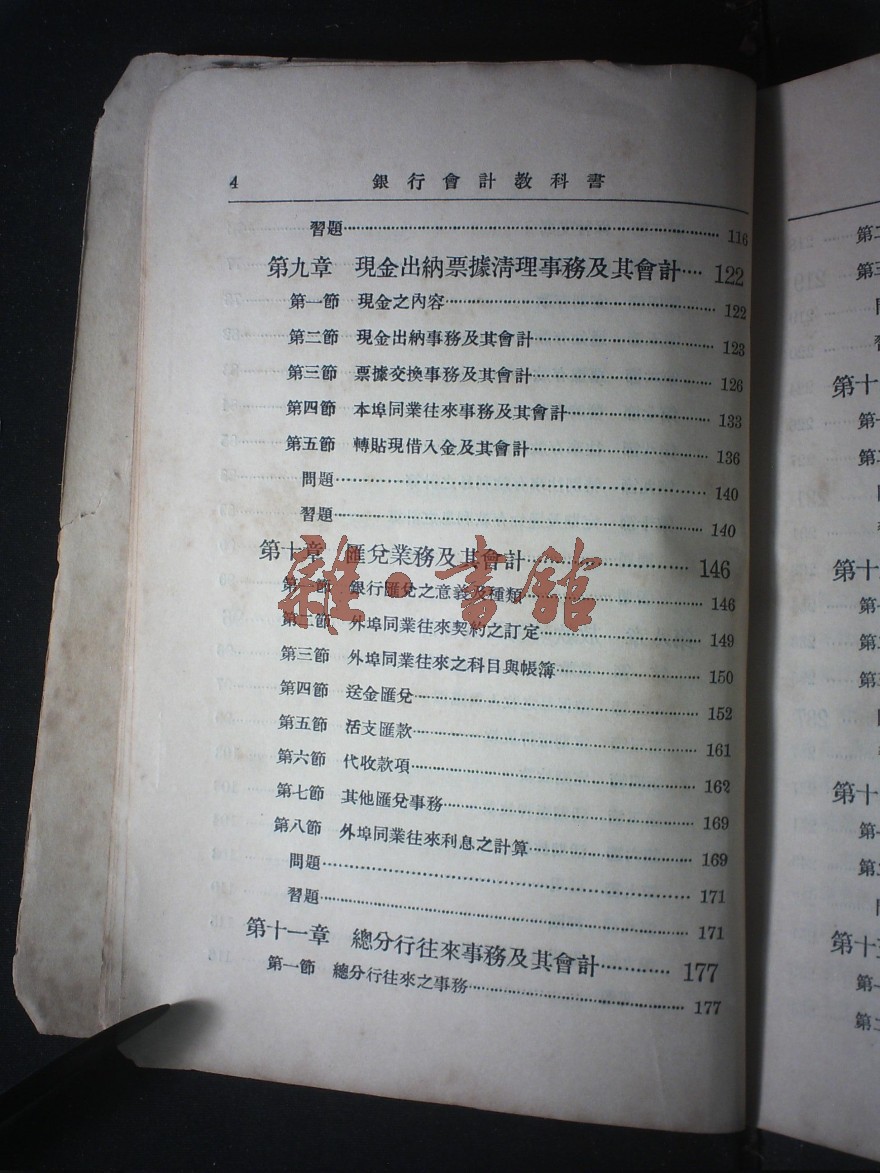 4 銀行會計教科書
習題 116
第九章 現金出納票據清理事務及其會計 122
第一節 現金之內容 122
第二節 現金出納事務及其會計 123
第三節 票據交換事務及其會計 126
第四節 本埠同業往來事務及其會計 133
第五節 轉貼現借入金及其會計 136
問題 140
習題 140
第十章 匯兌業務及其會計 146
第一節 銀行匯兌之意義及種類 146
第二節 外埠同業往來契約之訂定 149
第三節 外埠同業往來之科目與帳簿 150
第四節 送金匯兌 152
第五節 活支匯款 161
第六節 代收款項 162
第七節 其他匯兌事務 169
第八節 外埠同業往來利息之計算 169
問題 171
習題 171
第十一章 總分行往來事務及其會計 177
第一節 總分行往來之事務 177
雜·書館
第二
第三
第十
第
第二
第十
第一
第二
第三
第十
第
第二
第十
第
第二